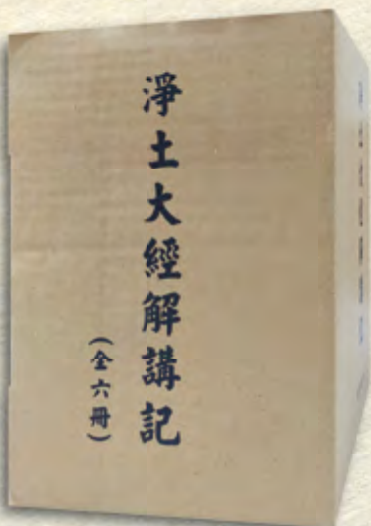 淨土大經解講記
(全六冊)